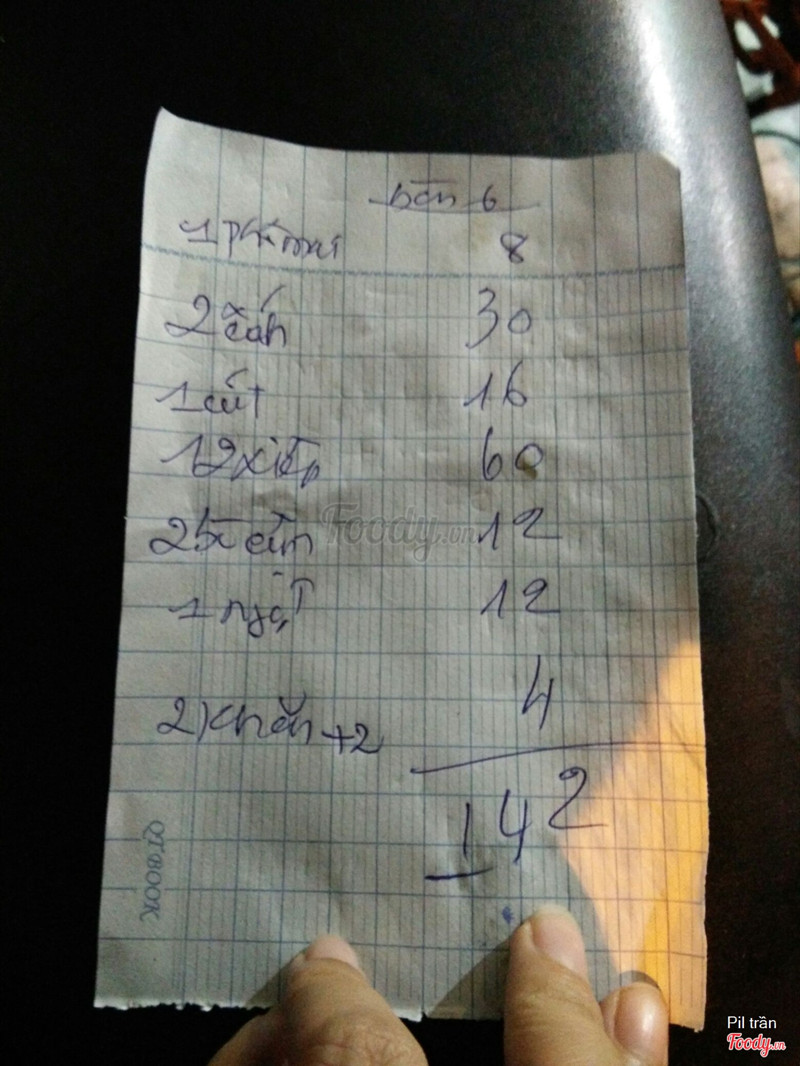 bàn 6
1 8
2 cánh 30
1 cút 16
12 xiên 60
2 12
1 ngọt 12
2 khăn +2 4
142
QTBOOK
Foody.vn
Pil trần
Foody.vn